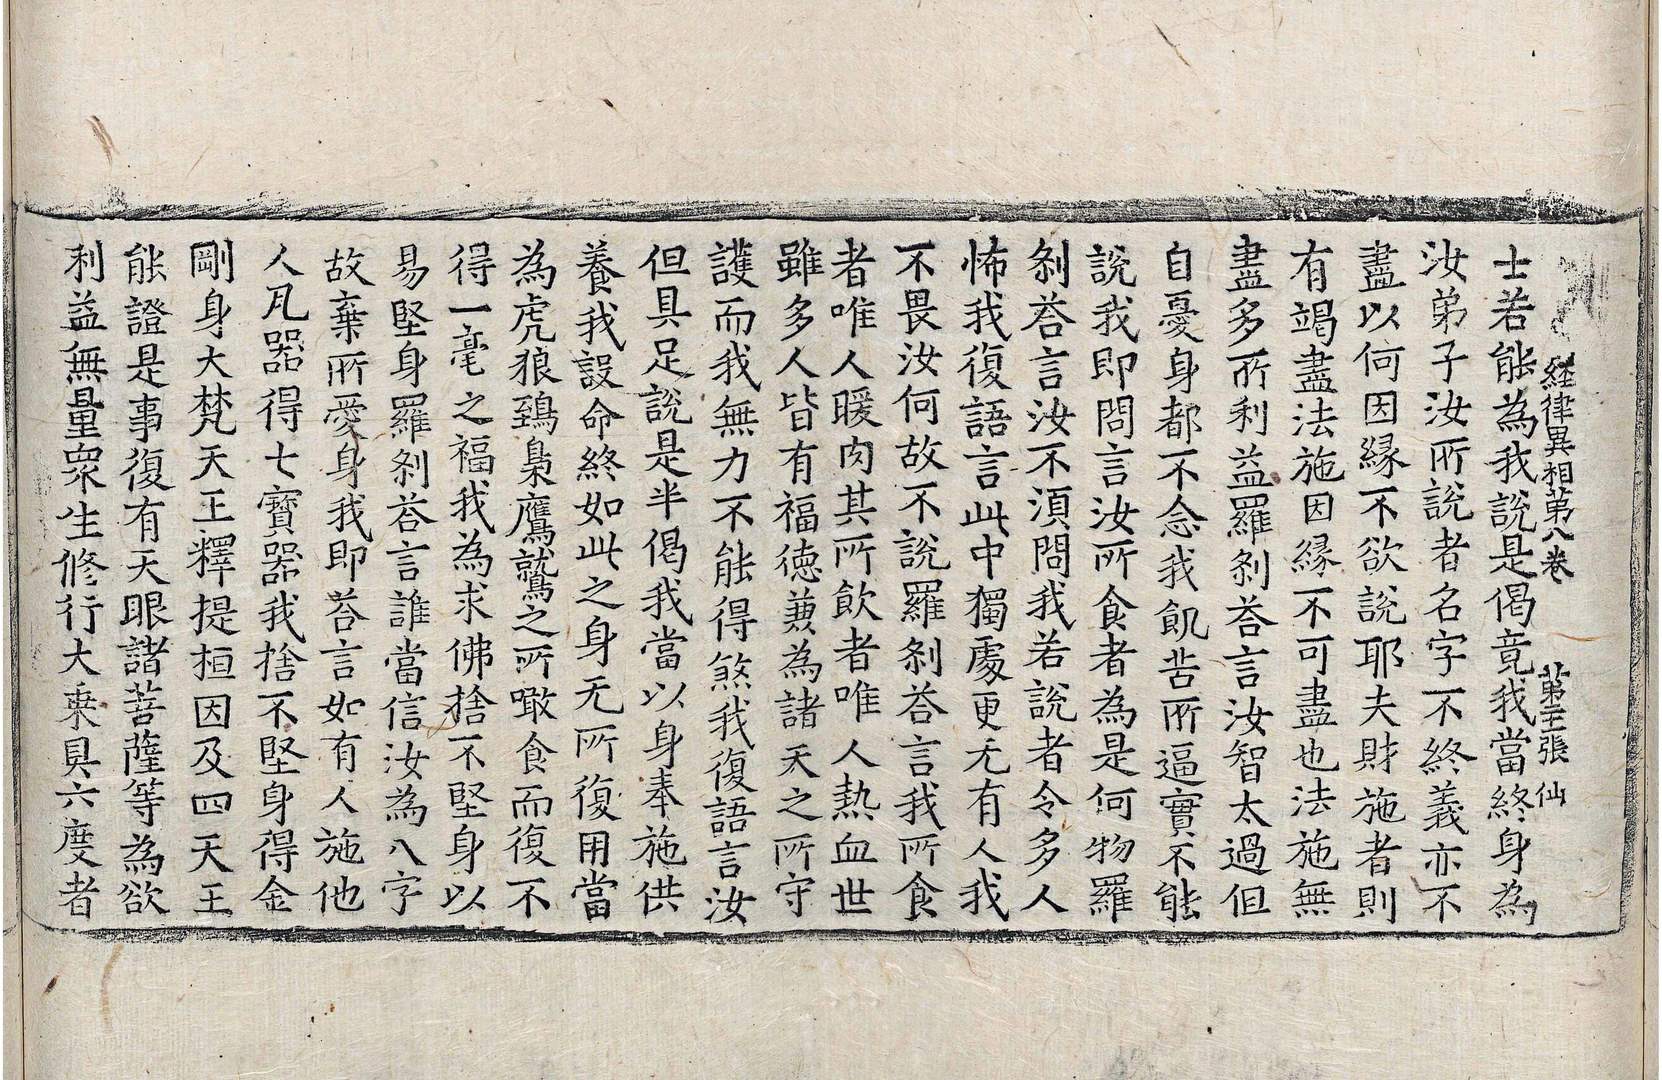 經律異相第八卷 第三張 仙
士若能為我說是偈竟我當終身為
汝弟子汝所說者名字不終義亦不
盡以何因緣不欲說耶夫財施者則
有竭盡法施因緣不可盡也法施無
盡多所利益羅剎荅言汝智太過但
自憂身都不念我飢苦所逼實不能
說我即問言汝所食者為是何物羅
剎荅言汝不湏問我若說者令多人
怖我復語言此中獨處更无有人我
不畏汝何故不說羅剎荅言我所食
者唯人暖肉其所飲者唯人熱血世
雖多人皆有福德兼為諸天之所守
護而我無力不能得煞我復語言汝
但具足說是半偈我當以身奉施供
養我設命終如此之身无所復用當
為虎狼鵄梟鷹鷲之所噉食而復不
得一毫之福我為求佛捨不堅身以
易堅身羅剎荅言誰當信汝為八字
故棄所愛身我即荅言如有人施他
人凡器得七寶器我捨不堅身得金
剛身大梵天王釋提桓因及四天王
能證是事復有天眼諸菩薩等為欲
利益無量眾生修行大乘具六度者